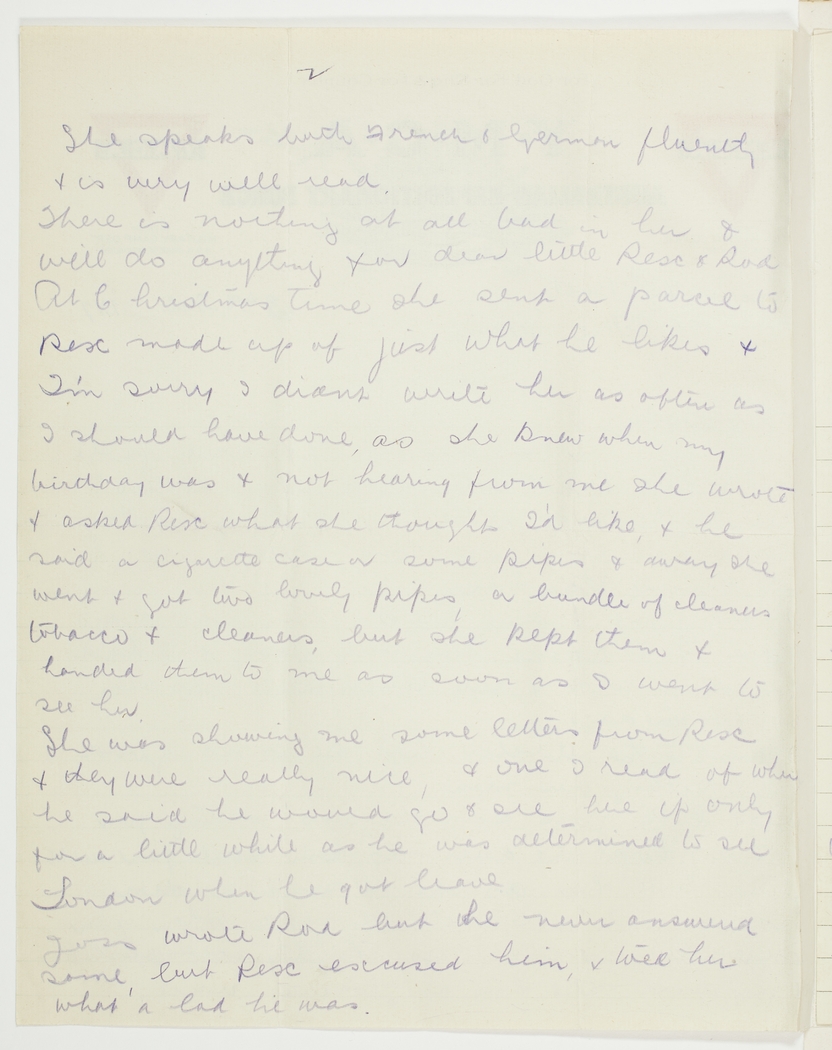 2
She speaks both French & German fluently
& is very well read.
There is nothing at all bad in her &
will do anything for dear little Resc & Rod
At Christmas time she sent a parcel to
Resc made up of just what he likes &
I'm sorry I didnt write her as often as
I should have done, as she knew when my
birthday was & not hearing from me she wrote
& asked Resc what she thought I'd like, & he
said a cigarette case or some pipes & away she
went & got two lovely pipes, a bundle of cleaners
tobacco & cleaners, but she kept them &
handed them to me as soon as I went to
see her.
She was showing me some letters from Resc
& they were really nice, & one I read of when
he said he would go & see her if only
for a little while as he was determined to see
London when he got leave
Joss wrote Rod but he never answered
same, but Resc excused him, & told her
what a lad he was.